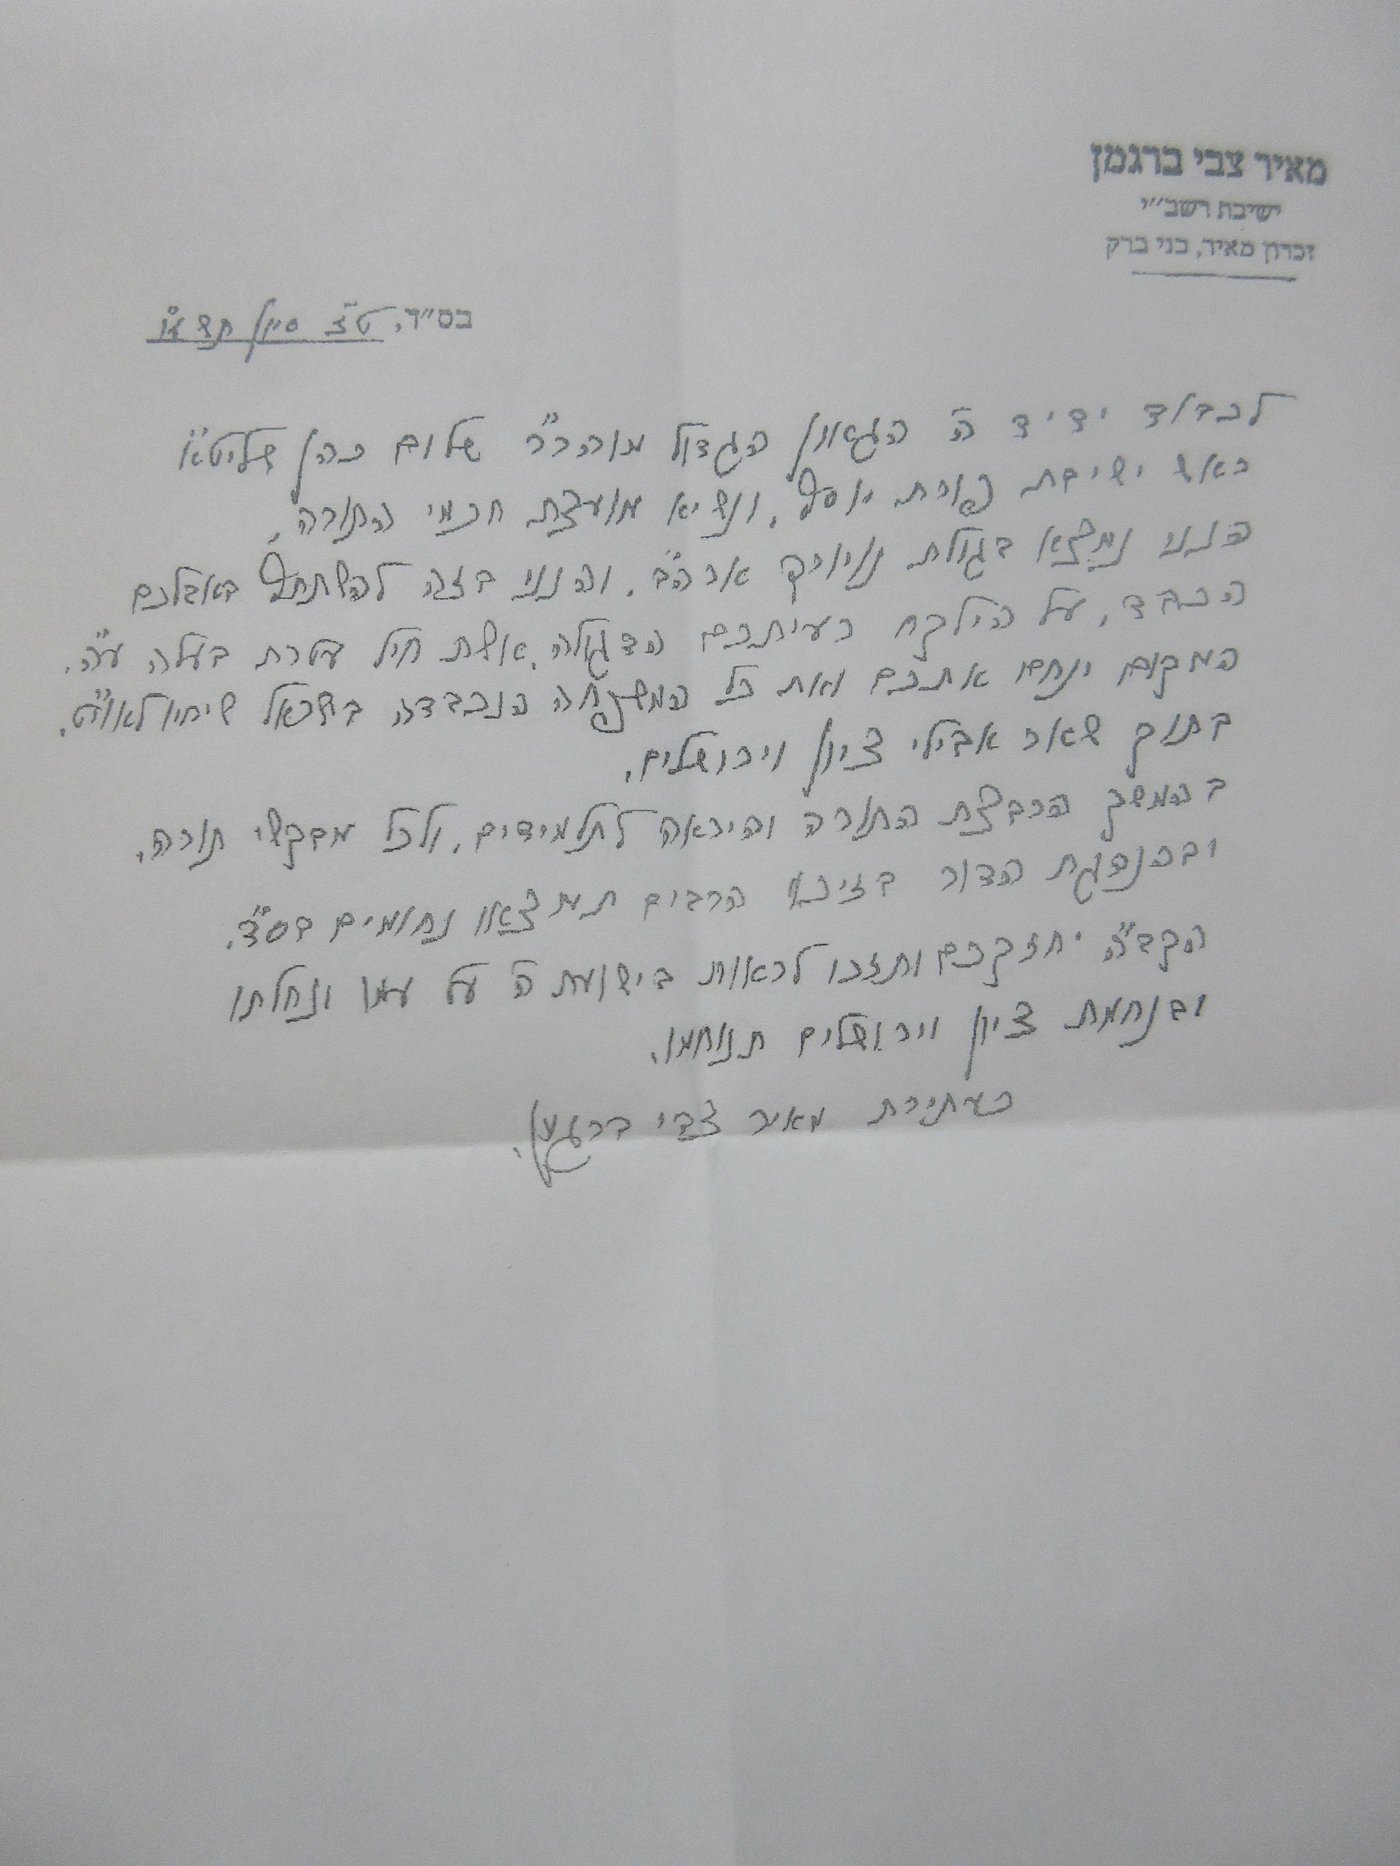 מאיר צבי ברגמן
ישיבת רשב״י
זכרון מאיר, בני ברק
בס״ד, ט״ז סיון תשע״ו
לכבוד ידיד ה' הגאון הגדול מוהר״ר שלום כהן שליט״א
ראש ישיבת פורת יוסף, ונשיא מועצת חכמי התורה,
הנני נמצא בגולת נויורק ארה״ב. והנני בזה להשתתף באבלכם
הכבד, על הילקח רעיתכם הדגולה, אשת חיל עטרת בעלה ע״ה.
המקום ינחם אתכם ואת כל המשפחה הנכבדה בישראל שיחיו לאוי״ט,
בתוך שאר אבילי ציון וירושלים,
בהמשך הרבצת התורה והיראה לתלמידים, ולכל מבקשי תורה,
ובהנהגת הדור בזיכוי הרבים תמצאו נחומים בס״ד.
הקב״ה יחזקכם ותזכו לראות בישועת ה' על עמו ונחלתו
ובנחמת ציון וירושלים תנוחמו,
כעתירת מאיר צבי ברגמן,